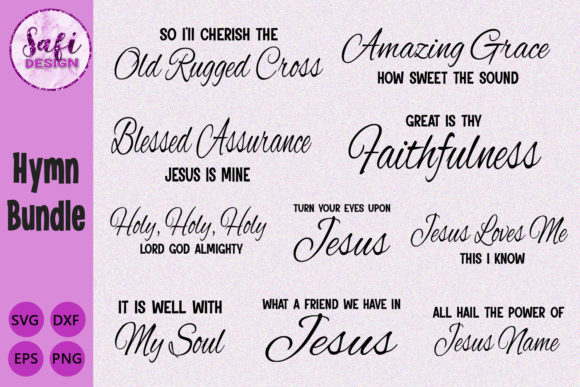 Safi
DESIGN
Hymn
Bundle
SVG DXF
EPS PNG
SO I'll CHERISH THE
Old Rugged Cross
Amazing Grace
HOW SWEET THE SOUND
Blessed Assurance
JESUS IS MINE
GREAT IS THY
Faithfulness
Holy, Holy, Holy
LORD GOD ALMIGHTY
TURN YOUR EYES UPON
Jesus
Jesus Loves Me
THIS I KNOW
IT IS WELL WITH
My Soul
WHAT A FRIEND WE HAVE IN
Jesus
ALL HAIL THE POWER OF
Jesus Name